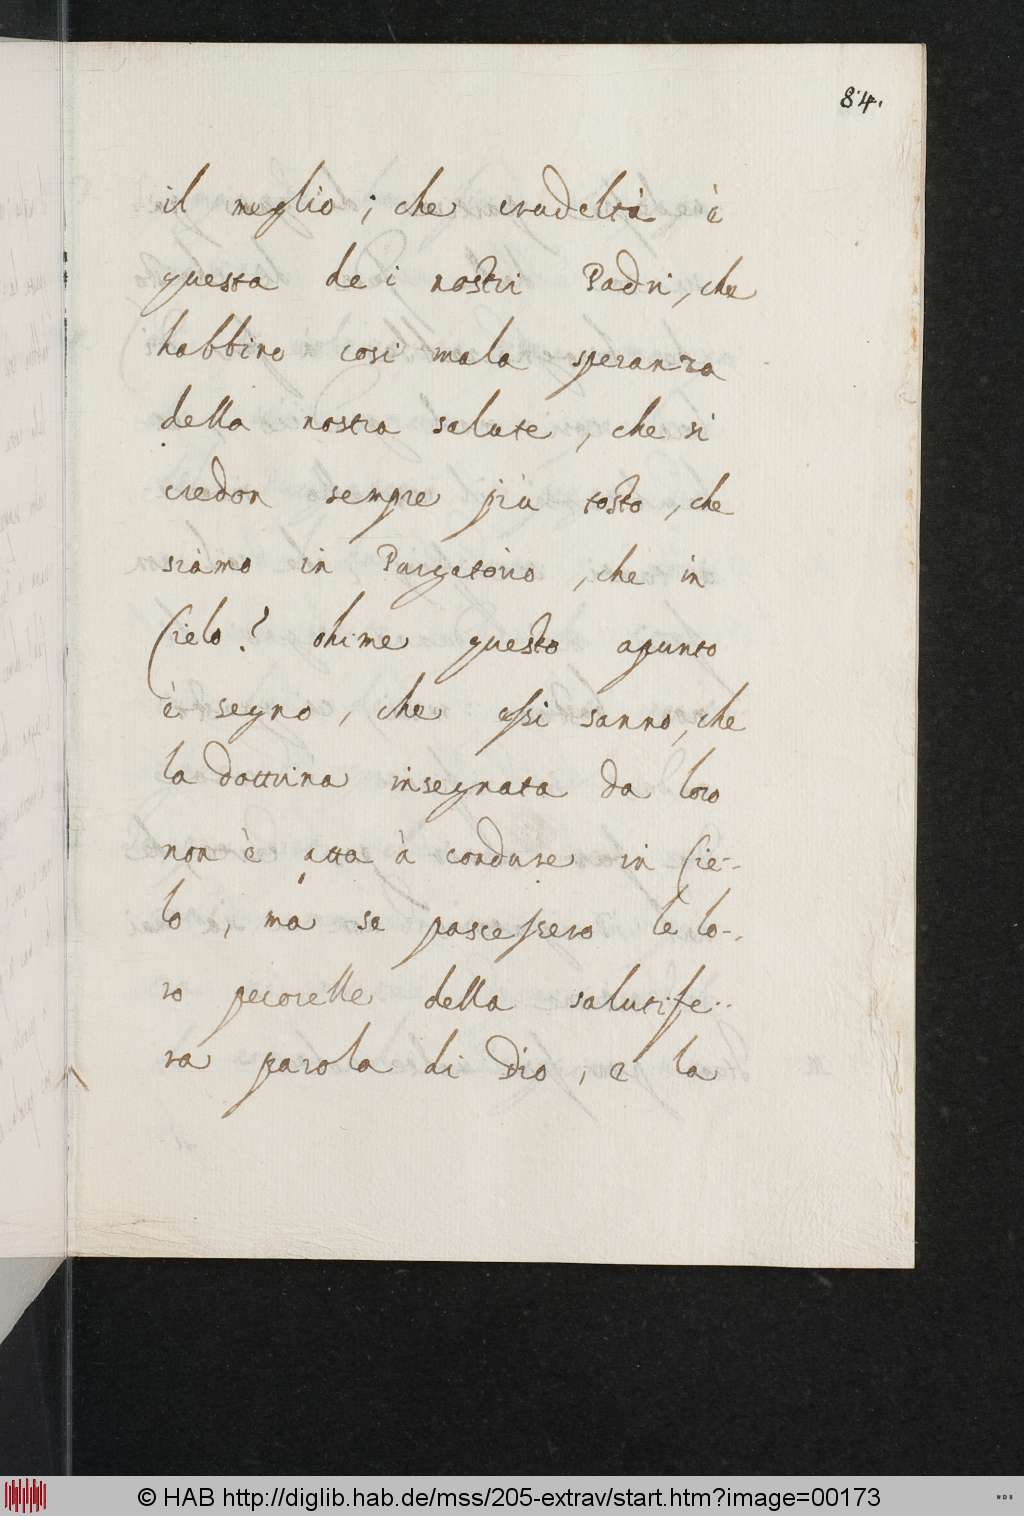 84.
il meglio ; che crudeltà è
questa dei nostri Padri, che
habbino cosi mala speranza
della nostra salute , che si
credon sempre piu tosto , che
siamo in Purgatorio , che in
Cielo ? ohime questo apunto
è segno , che essi sanno, che
la dottrina insegnata da loro
non è atta à condure in Cie-
lo , mà se pascessero le lo-
ro pecorelle della salutife-
ra parola di Dio , e la
© HAB http://diglib.hab.de/mss/205-extrav/start.htm?image=00173